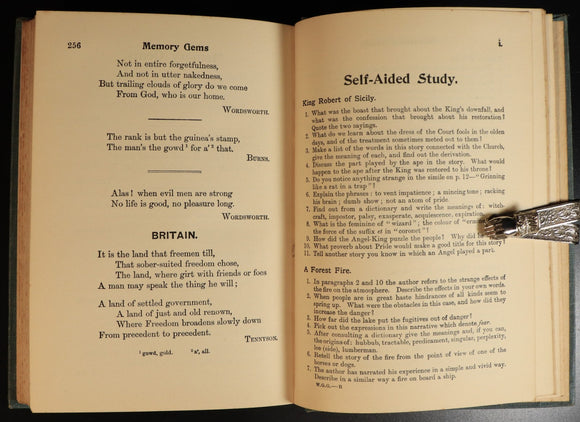 256 Memory Gems
Not in entire forgetfulness,
And not in utter nakedness,
But trailing clouds of glory do we come
From God, who is our home.
WORDSWORTH.
The rank is but the guinea's stamp,
The man's the gowd¹ for a'² that.
BURNS.
Alas! when evil men are strong
No life is good, no pleasure long.
WORDSWORTH.
BRITAIN.
It is the land that freemen till,
That sober-suited freedom chose,
The land, where girt with friends or foes
A man may speak the thing he will;
A land of settled government,
A land of just and old renown,
Where Freedom broadens slowly down
From precedent to precedent.
TENNYSON.
¹ gowd, gold. ² a', all.
i.
Self-Aided Study.
King Robert of Sicily.
1. What was the boast that brought about the King's downfall, and
what was the confession that brought about his restoration?
Quote the two sayings.
2. What do we learn about the dress of the Court fools in the olden
days, and of the treatment sometimes meted out to them?
3. Make a list of the words in this story connected with the Church,
give the meaning of each, and find out the derivation.
4. Discuss the part played by the ape in the story. What would
happen to the ape after the King was restored to his throne?
5. Do you notice anything strange in the simile on p. 12—"Grinning
like a rat in a trap"?
6. Explain the phrases: to vent impatience; a mincing tone; racking
his brain; dumb show; not an atom of pride.
7. Find out from a dictionary and write the meanings of: witch-
craft, impostor, palsy, exasperate, acquiescence, expiration.
8. What is the feminine of "wizard"; the colour of
the force of the suffix et in "coronet"?
9. How did the Angel-King puzzle the people? Why did
10. What proverb about Pride would make a good title for this story?
11. Tell another story you know in which an Angel played a part.
A Forest Fire.
1. In paragraphs 2 and 10 the author refers to the strange effects of
the fire on the atmosphere. Describe the effects in your own words.
2. When people are in great haste hindrances of all kinds seem to
spring up. What were the obstacles in this case, and how did they
increase the danger?
3. How far did the lake put the fugitives out of danger?
4. Pick out the expressions in this narrative which denote fear.
5. After consulting a dictionary give the meanings and, if you can,
the origins of: hubbub, tractable, predicament, singular, perplexity,
lee (side), lumberman.
6. Retell the story of the fire from the point of view of one of the
horses or dogs.
7. The author has narrated his experience in a simple and vivid way.
Describe in a similar way a fire on board a ship.
W.G.G.—R